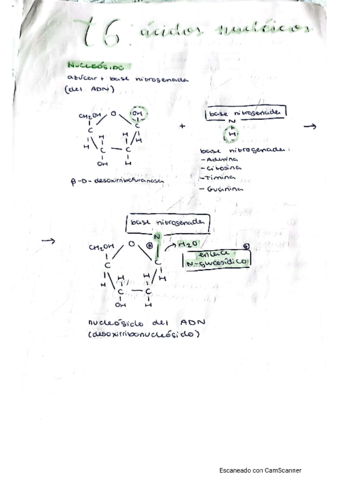 T6: ácidos nucleicos
NUCLEÓSIDO
azúcar + base nitrogenada
(del ADN)
CH₂OH O OH
C C
H H H H
C C
OH H
β-D-desoxirribofuranosa
+
base nitrogenada
N
H
→
base nitrogenada:
- Adenina
- Citosina
- Timina
- Guanina
→
base nitrogenada
N
CH₂OH O
→ H₂O
C C
H H H H
C — C
OH H
enlace
N-glucosídico
nucleósido del ADN
(desoxirribonucleósido)
Escaneado con CamScanner